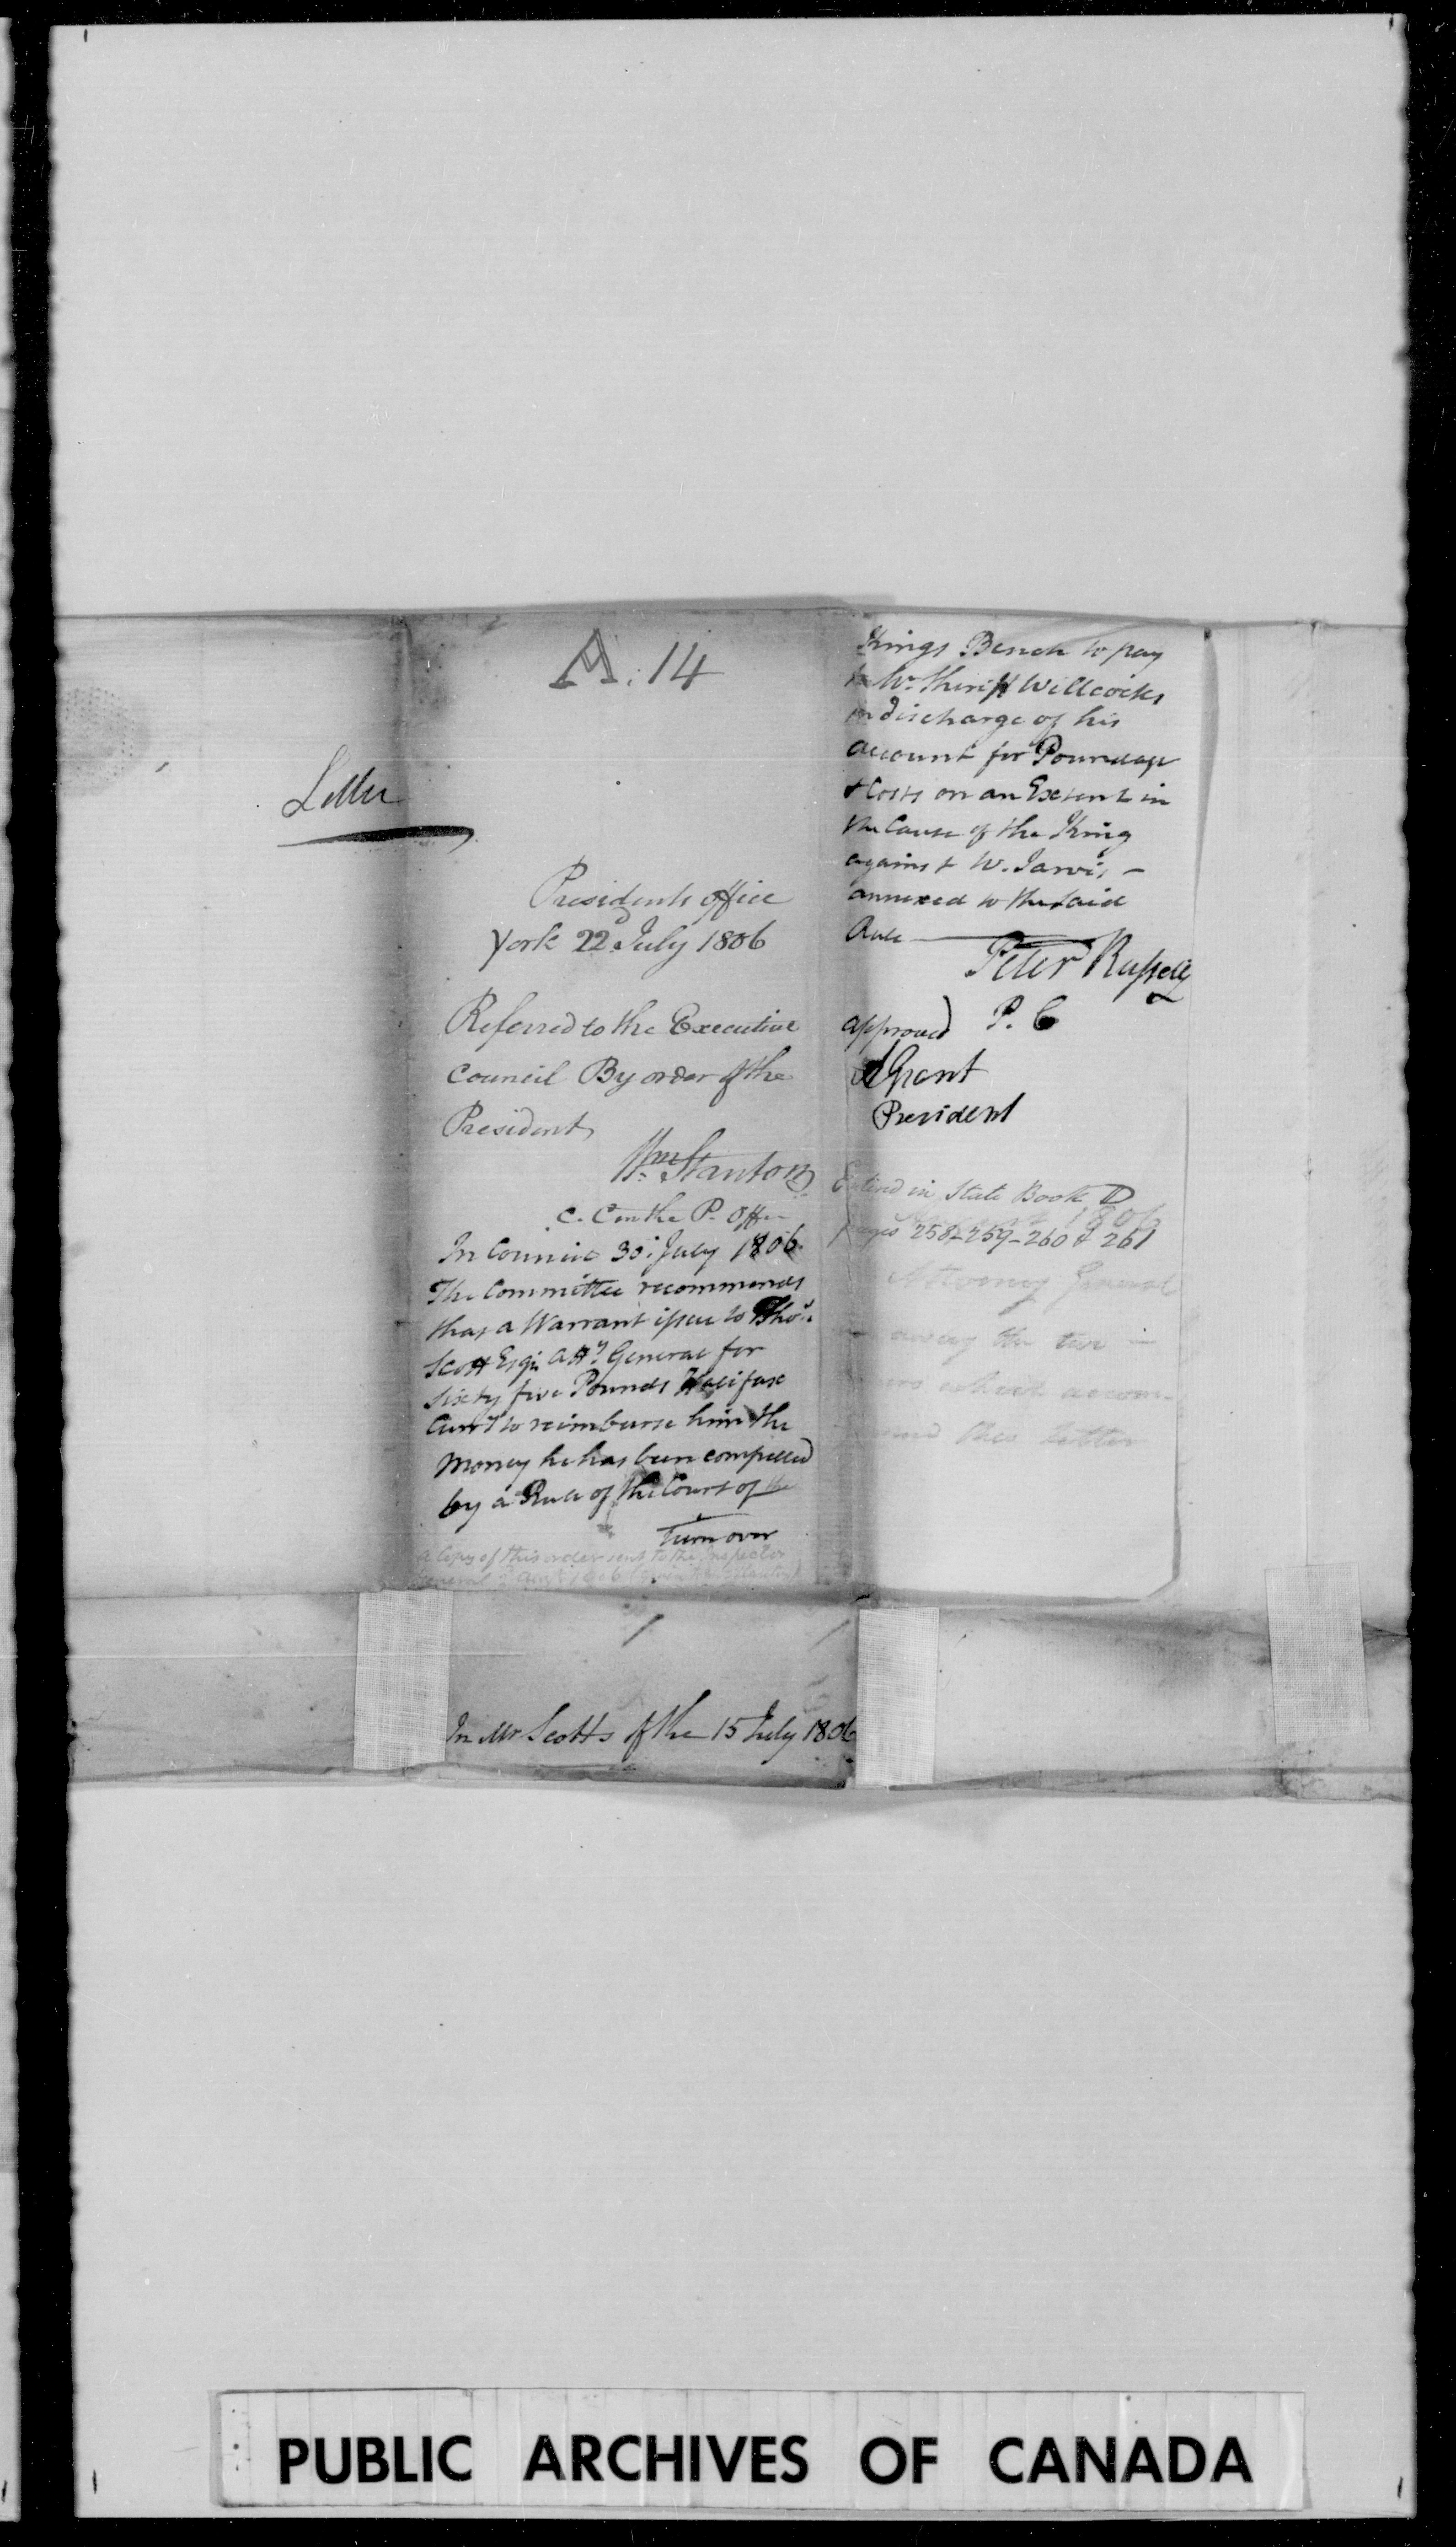 A. 14
Letter
Presidents office
York 22d July 1806
Referred to the Executive
Council By order of the
President
Wm Stanton
C. C in the P. Office
In Council 30: July 1806.
The Committee recommends
that a Warrant issue to Thos.
Scott Esqr. Atty. General for
Sixty five Pounds Halifax
Curry to reimburse him the
money he has been compelled
by a Rule of the Court of the
Turn over
a Copy of this order sent to the Inspector
General 2 Augt 1806
Kings Bench to pay
to Mr. Sheriff Willcocks
in discharge of his
account for Poundage
& Costs on an Extent in
the Cause of the King
against W. Jarvis -
annexed to the said
Rule
Peter Russell
P. C
approved
A Grant
President
Entered in State Book D
pages 258-259-260 & 261
1806
Attorney General
the two
which accom-
this letter
In Mr Scotts of the 15 July 1806
PUBLIC ARCHIVES OF CANADA